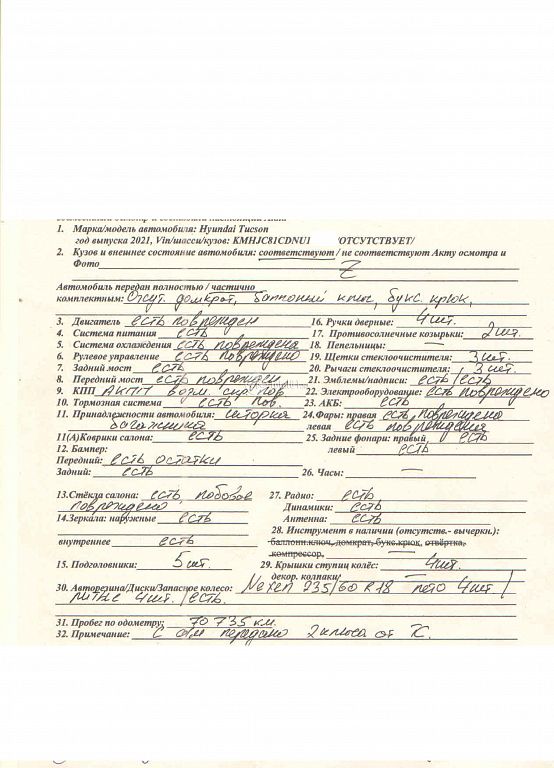 1. Марка/модель автомобиля: Hyundai Tucson
год выпуска 2021, Vin/шасси/кузов: KMHJC81CDNU1 /ОТСУТСТВУЕТ/
2. Кузов и внешнее состояние автомобиля: соответствуют / не соответствуют Акту осмотра и
Фото Z
Автомобиль передан полностью / частично
комплектным: Отсут. домкрат, баллонный ключ, букс. крюк,
3. Двигатель есть поврежден
4. Система питания есть
5. Система охлаждения есть повреждена
6. Рулевое управление есть повреждено
7. Задний мост есть
8. Передний мост есть поврежден
9. КПП АКПП возм. скр. пов
10. Тормозная система есть пов.
11. Принадлежности автомобиля: шторка
багажника
11(А)Коврики салона: есть
12. Бампер:
Передний: есть остатки
Задний: есть
13.Стёкла салона: есть, лобовое
повреждено
14.Зеркала: наружные есть
внутреннее есть
15. Подголовники: 5 шт.
16. Ручки дверные: 4 шт.
17. Противосолнечные козырьки: 2 шт.
18. Пепельницы: —
19. Щетки стеклоочистителя: 3 шт.
20. Рычаги стеклоочистителя: 3 шт.
21. Эмблемы/надписи: есть/есть
22. Электрооборудование: есть повреждено
23. АКБ: есть
24.Фары: правая есть, повреждена
левая есть повреждения
25. Задние фонари: правый есть
левый есть
26. Часы: —
27. Радио: есть
Динамики: есть
Антенна: есть
28. Инструмент в наличии (отсутств.- вычеркн.):
баллонн.ключ, домкрат, букс.крюк, отвёртка,
компрессор,
29. Крышки ступиц колёс: 4 шт.
декор. колпаки/
30. Авторезина/Диски/Запасное колесо: Nexen 235/60 R18 лето 4 шт/
литые 4 шт. /есть.
31. Пробег по одометру: 70 735 км.
32. Примечание: С а/м передано 2 ключа от ТС.